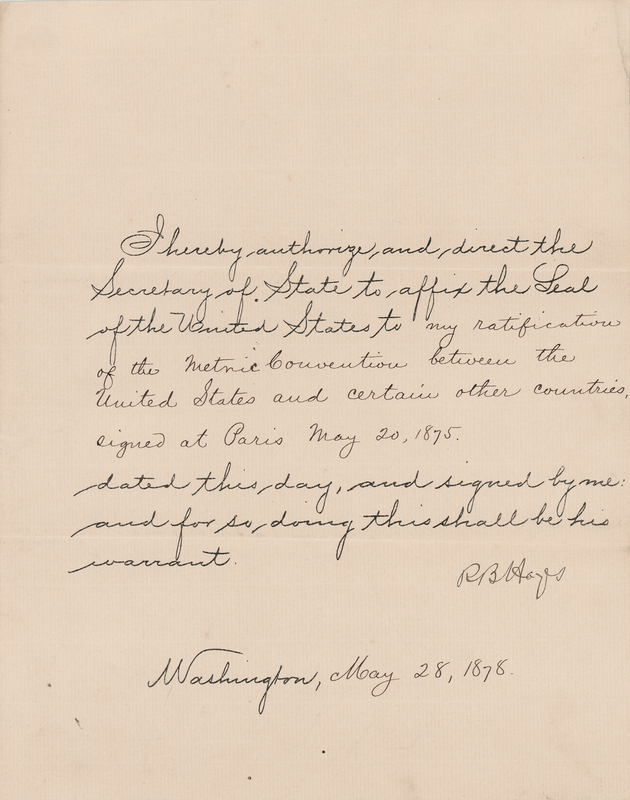 I hereby authorize and direct the
Secretary of State to affix the Seal
of the United States to my ratification
of the Metric Convention between the
United States and certain other countries,
signed at Paris May 20, 1875.
dated this day, and signed by me:
and for so doing this shall be his
warrant.
R B Hayes
Washington, May 28, 1878.